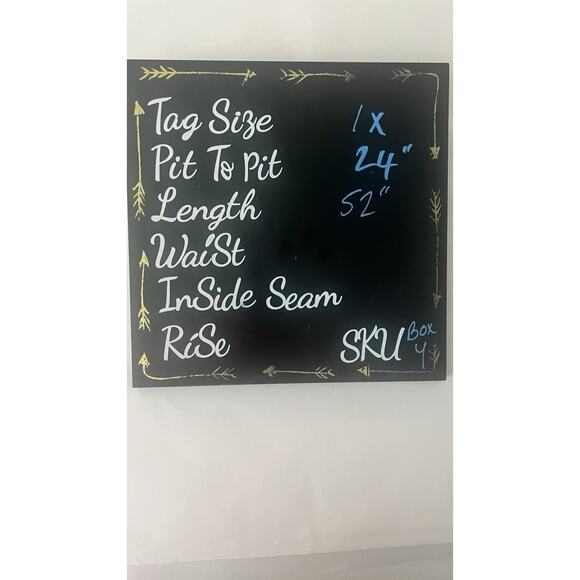 Tag Size 1X
Pit To Pit 24"
Length 52"
WaiSt
InSide Seam
RiSe
SKU Box 4